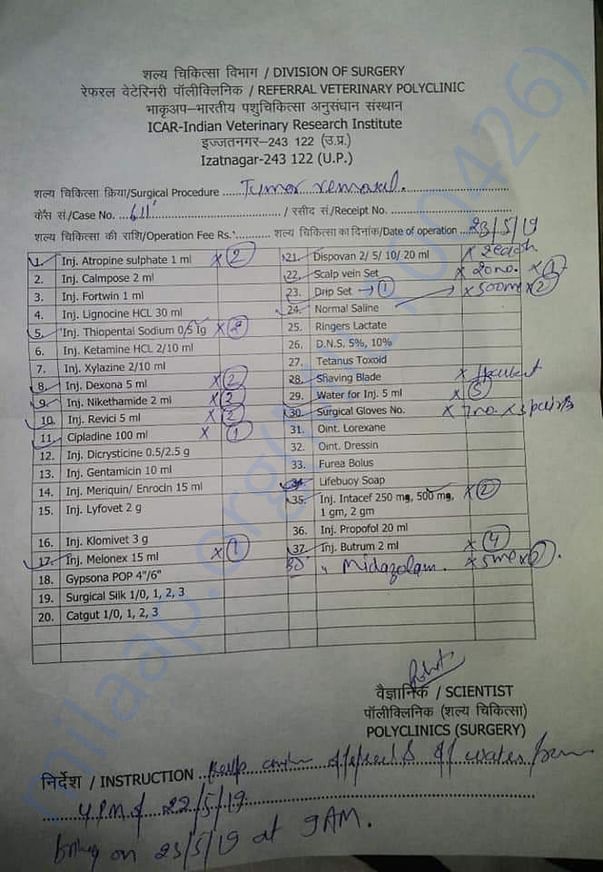 शल्य चिकित्सा विभाग / DIVISION OF SURGERY
रेफरल वेटेरिनरी पॉलीक्लिनिक / REFERRAL VETERINARY POLYCLINIC
भाकृअप-भारतीय पशुचिकित्सा अनुसंधान संस्थान
ICAR-Indian Veterinary Research Institute
इज्जतनगर-243 122 (उ.प्र.)
Izatnagar-243 122 (U.P.)
शल्य चिकित्सा क्रिया/Surgical Procedure Tumor removal.
केस सं./Case No. 611 / रसीद सं./Receipt No.
शल्य चिकित्सा की राशि/Operation Fee Rs. शल्य चिकित्सा का दिनांक/Date of operation 23/5/19
1. Inj. Atropine sulphate 1 ml x 2
2. Inj. Calmpose 2 ml
3. Inj. Fortwin 1 ml
4. Inj. Lignocine HCL 30 ml
5. Inj. Thiopental Sodium 0/5 1g x 2
6. Inj. Ketamine HCL 2/10 ml
7. Inj. Xylazine 2/10 ml
8. Inj. Dexona 5 ml x 2
9. Inj. Nikethamide 2 ml x 2
10. Inj. Revici 5 ml x 2
11. Cipladine 100 ml x 1
12. Inj. Dicrysticine 0.5/2.5 g
13. Inj. Gentamicin 10 ml
14. Inj. Meriquin/ Enrocin 15 ml
15. Inj. Lyfovet 2 g
16. Inj. Klomivet 3 g
17. Inj. Melonex 15 ml x 1
18. Gypsona POP 4"/6"
19. Surgical Silk 1/0, 1, 2, 3
20. Catgut 1/0, 1, 2, 3
21. Dispovan 2/ 5/ 10/ 20 ml x 2 each
22. Scalp vein Set x 20 no. x 1
23. Drip Set → 1
24. Normal Saline x 500ml x 2
25. Ringers Lactate
26. D.N.S. 5%, 10%
27. Tetanus Toxoid
28. Shaving Blade x 1
29. Water for Inj. 5 ml x 5
30. Surgical Gloves No. x 7 no. x 3 pairs
31. Oint. Lorexane
32. Oint. Dressin
33. Furea Bolus
34. Lifebuoy Soap
35. Inj. Intacef 250 mg, 500 mg, x 2
1 gm, 2 gm
36. Inj. Propofol 20 ml
37. Inj. Butrum 2 ml x 4
38 " Midazolam. x 5ml x
वैज्ञानिक / SCIENTIST
पॉलीक्लिनिक (शल्य चिकित्सा)
POLYCLINICS (SURGERY)
निर्देश / INSTRUCTION Keep off feed & off water from
4PM of 22/5/19
bring on 23/5/19 at 9AM.